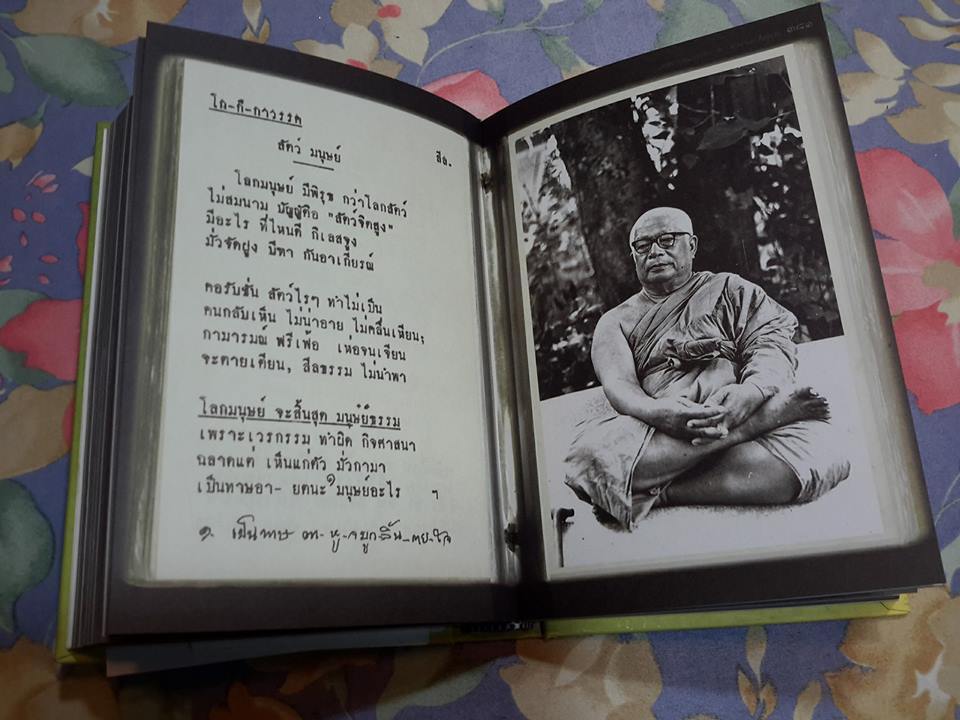 โก-กิ-กาวรรค
สัตว์ มนุษย์ สีล.
โลกมนุษย์ มีพิรุธ กว่าโลกสัตว์
ไม่สมนาม บัญญัติอ "สัตว์จิตสูง"
มีอะไร ที่ไหนดี กิเลสจูง
มั่วจัดฝูง บีฑา กันอาเกียรณ์
คอรัปชั่น สัตว์ไรๆ ทำไม่เป็น
คนกลับเห็น ไม่น่าอาย ไม่คลื่นเหียน;
กามารมณ์ ฟรีเฟ้อ เห่อจนเจียน
จะตายเตียน, สีลธรรม ไม่นำพา
โลกมนุษย์ จะสิ้นสุด มนุษย์ธรรม
เพราะเวรกรรม ทำผิด กิจศาสนา
ฉลาดแต่ เห็นแก่ตัว มั่วกามา
เป็นทาษอา- ยตนะ มนุษย์อะไร ฯ
๑. เป็นทาษ ตา-หู-จมูก-ลิ้น-กาย-ใจ